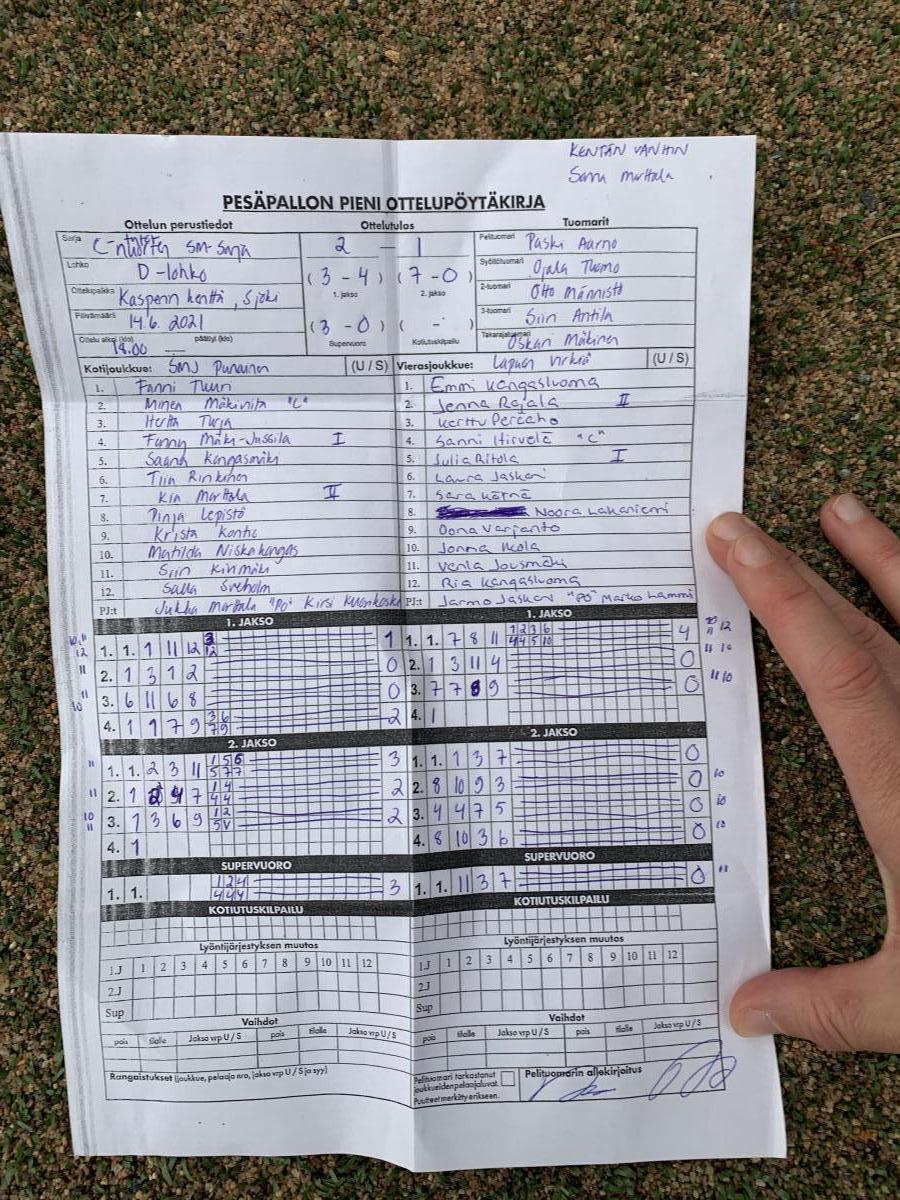 KENTÄN VANHIN
Sanna Marttala
PESÄPALLON PIENI OTTELUPÖYTÄKIRJA
Ottelun perustiedot Ottelutulos Tuomarit
Sarja C-nuorten SM-Sarja 2 - 1 Pelituomari Paski Aarno
Lohko D-lohko (3-4) (7-0) Syöttötuomari Ojala Tuomo
1. jakso 2. jakso
Ottelupaikka Kasperin kenttä, Sjoki 2-tuomari Otto Männistö
Päivämäärä 14.6. 2021 (3-0) ( - ) 3-tuomari Siiri Antila
Ottelu alkoi (klo) 18.00 päättyi (klo) Supervuoro Kotiutuskilpailu Takarajatuomari Oskari Mäkinen
Kotijoukkue: SMJ Punainen (U / S) Vierasjoukkue: Lapuan Virkiä (U / S)
1. Fanni Tuuri 1. Emmi Kangasluoma
2. Minea Mäkivirta "C" 2. Jenna Rajala II
3. Hertta Turja 3. Kerttu Peräaho
4. Fanny Mäki-Jussila I 4. Sanni Hirvelä "C"
5. Saana Kangasmäki 5. Julia Ritola I
6. Tiia Rinkinen 6. Laura Jaskari
7. Kia Marttala II 7. Sara Kärnä
8. Pinja Lepistö 8. Noora Lakaniemi
9. Krista Kontio 9. Oona Varjanto
10. Matilda Niskakangas 10. Jonna Ikola
11. Siiri Kivimäki 11. Venla Jousmäki
12. Salla Sveholm 12. Ria Kangasluoma
PJ:t Jukka Marttala "PO" Kirsi Kuorikoski PJ:t Jarmo Jaskari "PO" Marko Lammi
1. JAKSO 1. JAKSO
1. 1. 1 11 12 3 12 1 1. 1. 7 8 11 1 2 3 6 4 4 5 10 4 12
2. 1 3 1 2 0 2. 1 3 11 4 0 11 10
3. 6 11 6 8 0 3. 7 7 8 9 0 11 10
4. 1 1 7 9 3 6 7 9 2 4. 1
2. JAKSO 2. JAKSO
11 1. 1. 2 3 11 1 5 6 5 7 7 3 1. 1. 1 3 7 0
11 2. 1 2 4 7 1 4 4 4 2 2. 8 10 9 3 0 10
10 11 3. 1 3 6 9 1 2 5 V 2 3. 4 4 7 5 0 10
4. 1 4. 8 10 3 6 0
SUPERVUORO SUPERVUORO
1. 1. 1 2 4 4 4 4 3 1. 1. 11 3 7 0 11
KOTIUTUSKILPAILU KOTIUTUSKILPAILU
Lyöntijärjestyksen muutos Lyöntijärjestyksen muutos
1.J 1 2 3 4 5 6 7 8 9 10 11 12 1.J 1 2 3 4 5 6 7 8 9 10 11 12
2.J 2.J
Sup Sup
Vaihdot Vaihdot
pois tilalle Jakso vrp U / S pois tilalle Jakso vrp U / S pois tilalle Jakso vrp U / S pois tilalle Jakso vrp U / S
Rangaistukset (joukkue, pelaaja nro, jakso vrp U / S ja syy) Pelituomari tarkastanut joukkueiden pelaajaluvat. Puutteet merkitty erikseen. Pelituomarin allekirjoitus